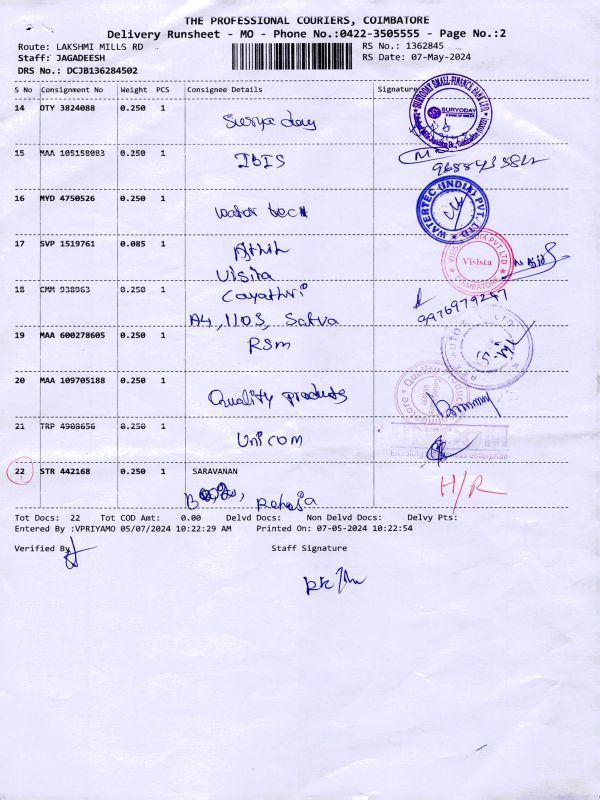 THE PROFESSIONAL COURIERS, COIMBATORE
Delivery Runsheet - MO - Phone No.:0422-3505555 - Page No.:2
Route: LAKSHMI MILLS RD RS No.: 1362845
Staff: JAGADEESH RS Date: 07-May-2024
DRS No.: DCJB136284502
S No Consignment No Weight PCS Consignee Details Signature
14 OTY 3824088 0.250 1
Surya day
SURYODAY
15 MAA 105158083 0.250 1
IBIS
16 MYD 4750526 0.250 1
water tech
WATERTEC (INDIA) PVT. LTD.
17 SVP 1519761 0.085 1
Athik
Visita
Visista
18 CMM 938963 0.250 1
Gayathri
9976979247
A4, 1103, Satva
19 MAA 600278605 0.250 1
RSM
20 MAA 109705188 0.250 1
Quality products
21 TRP 4908656 0.250 1
Unicom
22 STR 442168 0.250 1 SARAVANAN
H/R
Raheja
Tot Docs: 22 Tot COD Amt: 0.00 Delvd Docs: Non Delvd Docs: Delvy Pts:
Entered By :VPRIYAMO 05/07/2024 10:22:29 AM Printed On: 07-05-2024 10:22:54
Verified By Staff Signature